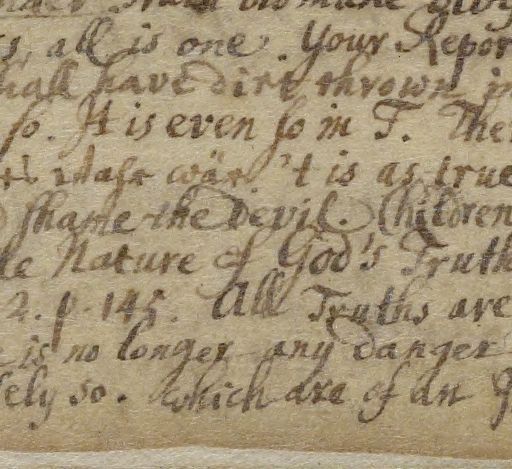 all is one. Your Repor
hall have dirt thrown in
so. It is even so in T. The
wär. 't is as true
shame the Devil. Children
le Nature of God's Truth
2. p. 145. All Truths are
is no longer any danger
ely so. which are of an